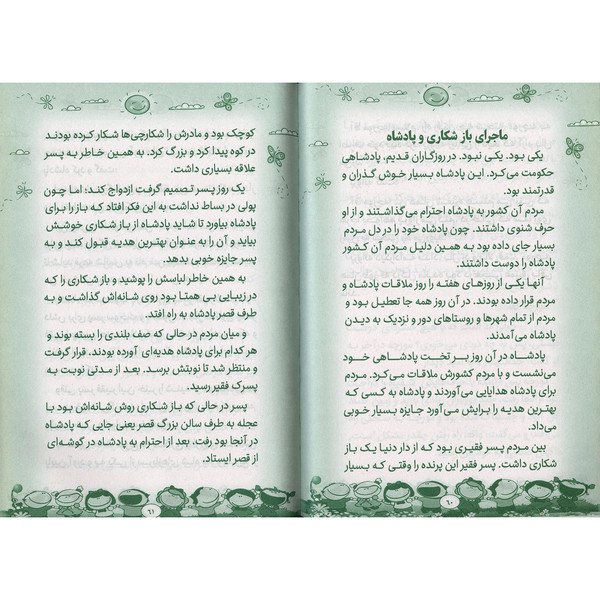 ماجرای باز شکاری و پادشاه
یکی بود. یکی نبود. در روزگاران قدیم، پادشاهی
حکومت می‌کرد. این پادشاه بسیار خوش گذران و
قدرتمند بود.
مردم آن کشور به پادشاه احترام می‌گذاشتند و از او
حرف شنوی داشتند. چون پادشاه خود را در دل مردم
بسیار جای داده بود به همین دلیل مردم آن کشور
پادشاه را دوست داشتند.
آنها یکی از روزهای هفته را روز ملاقات پادشاه و
مردم قرار داده بودند. در آن روز همه جا تعطیل بود و
مردم از تمام شهرها و روستاهای دور و نزدیک به دیدن
پادشاه می‌آمدند.
پادشاه در آن روز بر تخت پادشاهی خود
می‌نشست و با مردم کشورش ملاقات می‌کرد. مردم
برای پادشاه هدایایی می‌آوردند و پادشاه به کسی که
بهترین هدیه را برایش می‌آورد جایزه بسیار خوبی
می‌داد.
بین مردم پسر فقیری بود که از دار دنیا یک باز
شکاری داشت. پسر فقیر این پرنده را وقتی که بسیار
۶۰
کوچک بود و مادرش را شکارچی‌ها شکار کرده بودند
در کوه پیدا کرد و بزرگ کرد. به همین خاطر به پسر
علاقه بسیاری داشت.
یک روز پسر تصمیم گرفت ازدواج کند؛ اما چون
پولی در بساط نداشت به این فکر افتاد که باز را برای
پادشاه بیاورد تا شاید پادشاه از باز شکاری خوشش
بیاید و آن را به عنوان بهترین هدیه قبول کند و به
پسر جایزه خوبی بدهد.
به همین خاطر لباسش را پوشید و باز شکاری را که
در زیبایی بی همتا بود روی شانه‌اش گذاشت و به
طرف قصر پادشاه به راه افتاد.
و میان مردم در حالی که صف بندی را بسته بوند و
هر کدام برای پادشاه هدیه‌ای آورده بودند. قرار گرفت
و منتظر شد تا نوبتش برسد. بعد از مدتی نوبت به
پسرک فقیر رسید.
پسر در حالی که باز شکاری روش شانه‌اش بود با
عجله به طرف سالن بزرگ قصر یعنی جایی که پادشاه
در آنجا بود رفت، بعد از احترام به پادشاه در گوشه‌ای
از قصر ایستاد.
۶۱